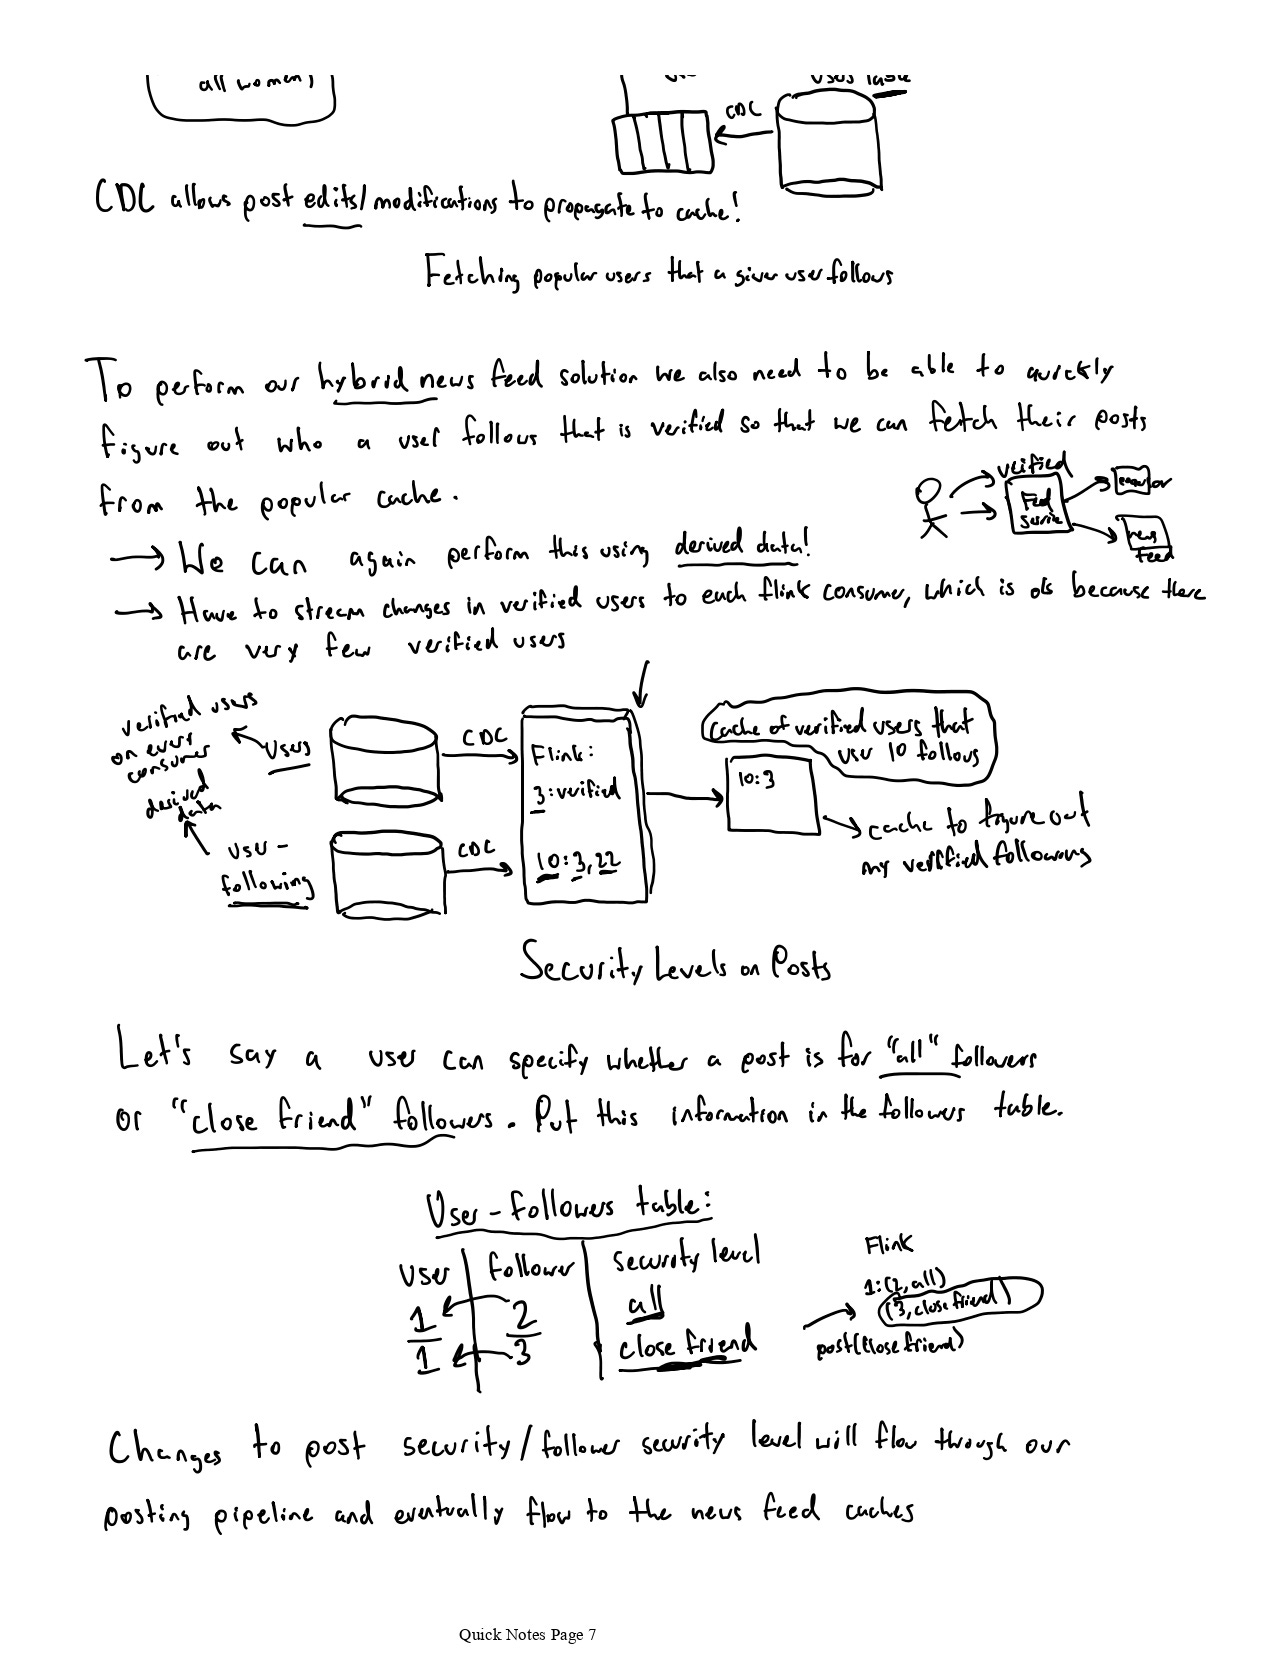 all women)
Users Table
CDC
CDC allows post edits/modifications to propagate to cache!
Fetching popular users that a given user follows
To perform our hybrid news feed solution we also need to be able to quickly
figure out who a user follows that is verified so that we can fetch their posts
from the popular cache.
verified
Feed
Service
news
feed
→ We can again perform this using derived data!
→ Have to stream changes in verified users to each flink consumer, which is ok because there
are very few verified users
verified users
on every
consumer
derived
data
Users
CDC
Flink:
3:verified
10:3,22
cache of verified users that
user 10 follows
10:3
cache to figure out
my verified following
user-
following
CDC
Security Levels on Posts
Let's say a user can specify whether a post is for "all" followers
or "close friend" followers. Put this information in the followers table.
User-followers table:
User follower security level
1 2 all
1 3 close friend
Flink
1:(2,all)
(3,close friend)
post(close friend)
Changes to post security/follower security level will flow through our
posting pipeline and eventually flow to the news feed caches
Quick Notes Page 7